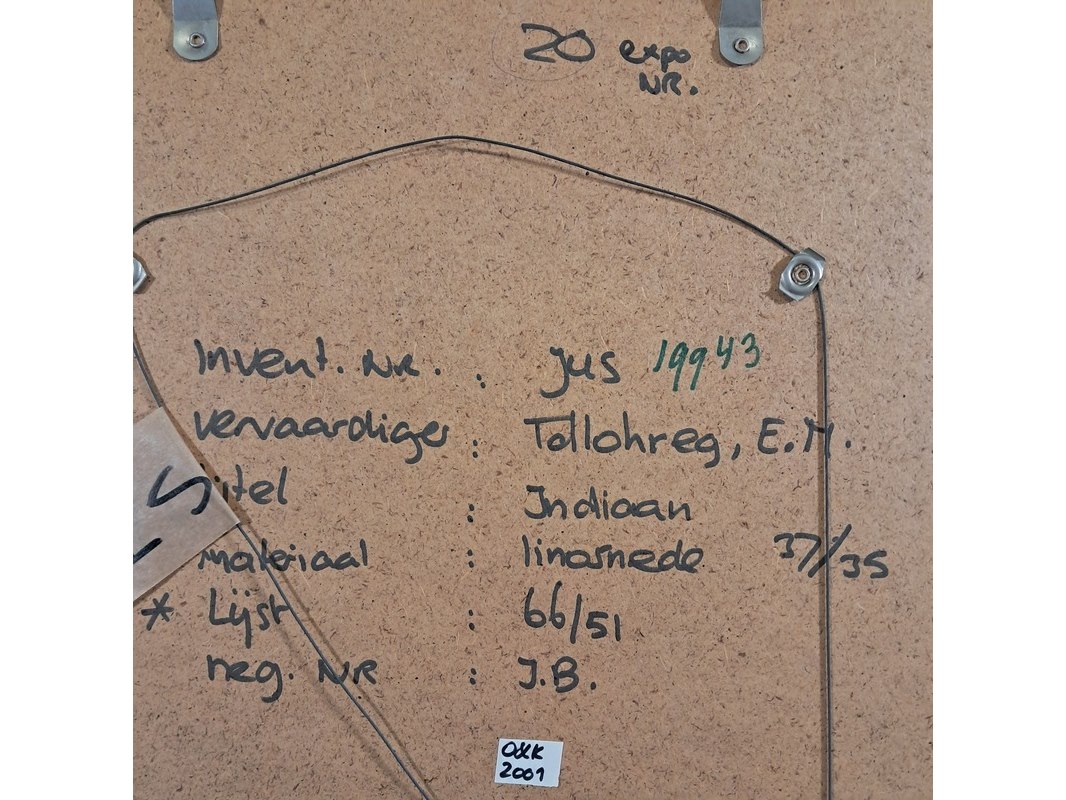 20 expo
NR.
Invent. NR. : jus 19943
vervaardiger : Tollohreg, E.M.
titel : Indiaan
materiaal : linosnede 37/35
* Lijst : 66/51
neg. NR : J.B.
O&K
2001